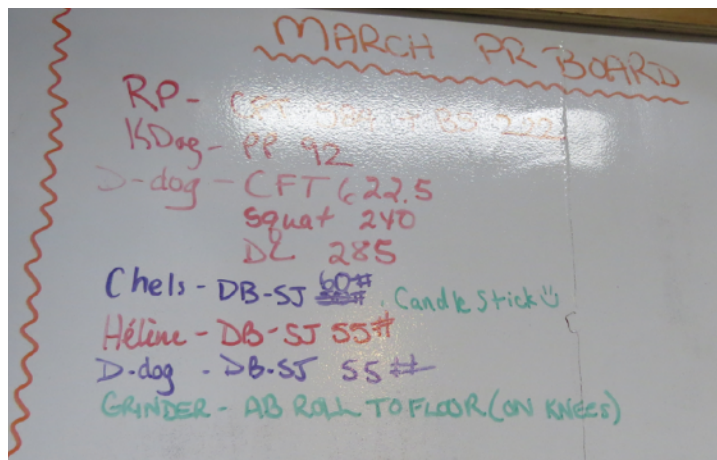 MARCH PR BOARD
RP- CFT
KDog- PP 92
D-dog - CFT 622.5
squat 240
DL 285
Chels - DB-SJ 60# . Candle Stick
Hélène - DB-SJ 55#
D-dog - DB-SJ 55#
GRINDER - AB ROLL TO FLOOR (ON KNEES)